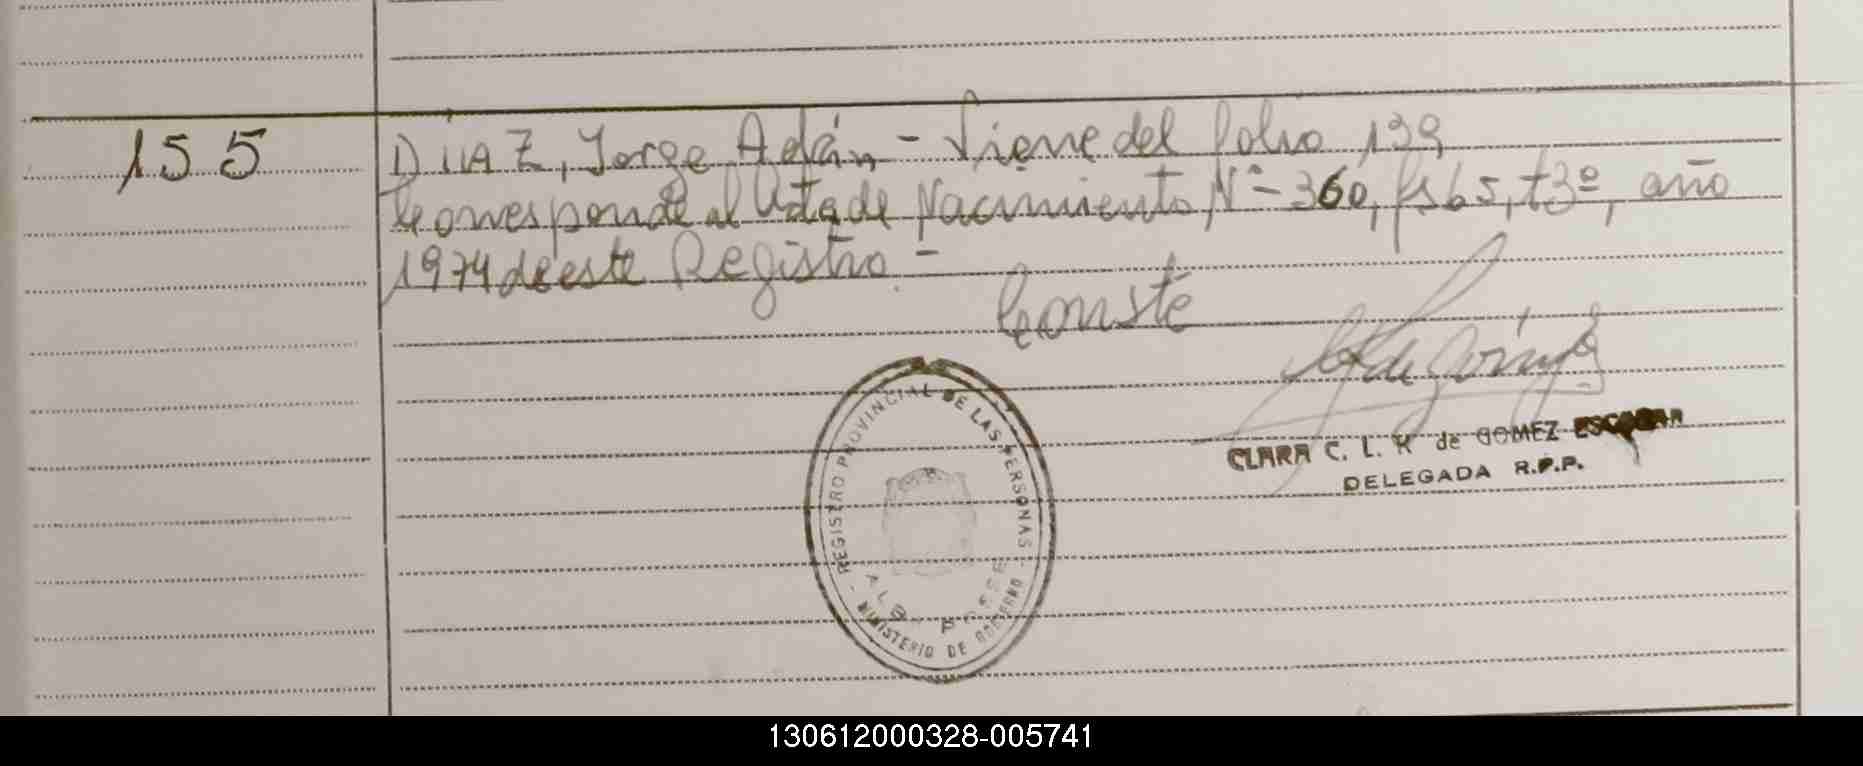 155
DIAZ, Jorge Adán - Viene del folio 139
Corresponde al Acta de Nacimiento, Nº 360, fs 65, t3º, año
1974 de este Registro -
Conste
CLARA C. L. K de GOMEZ ESCOBAR
DELEGADA R.P.P.
REGISTRO PROVINCIAL DE LAS PERSONAS
- MINISTERIO DE GOBIERNO
130612000328-005741